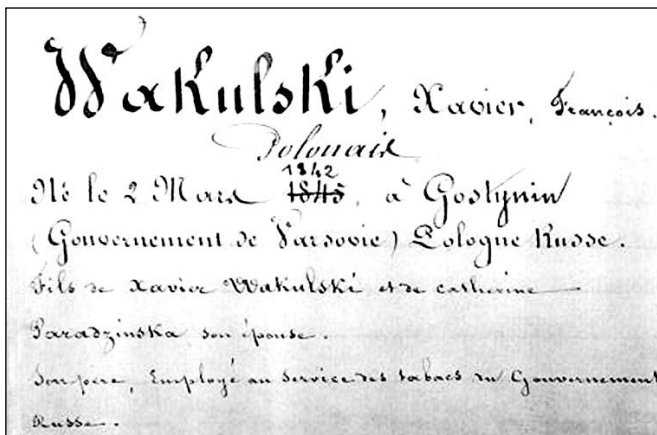 Wakulski, Xavier, François.
Polonais
1842
Né le 2 Mars 1845, à Gostynin
(Gouvernement de Varsovie) Pologne Russe.
Fils de Xavier Wakulski et de catherine
Paradzinska son épouse.
Son père, Employé au Service des tabacs du Gouvernement
Russe.